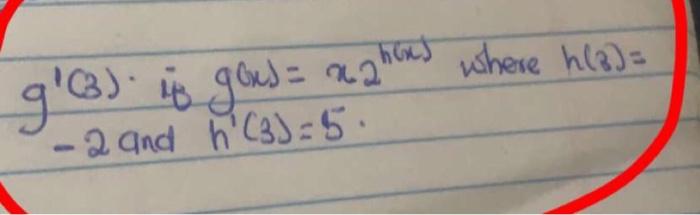 g'(3). if g(x) = x2^h(x) where h(3) =
-2 and h'(3) = 5.